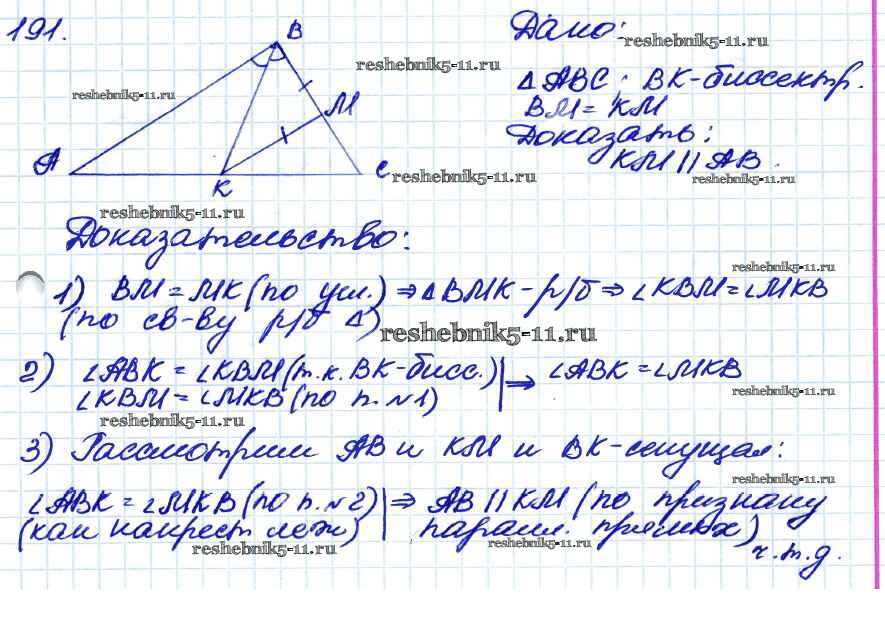 191.
B
reshebnik5-11.ru
reshebnik5-11.ru
M
A
K
C
reshebnik5-11.ru
reshebnik5-11.ru
Дано:
reshebnik5-11.ru
△ABC; BK-биссектр.
BM = KM
Доказать:
KM || AB.
reshebnik5-11.ru
Доказательство:
reshebnik5-11.ru
1) BM = MK (по усл.) ⇒ △BMK - р/б ⇒ ∠KBM = ∠MKB
(по св-ву р/б △)
reshebnik5-11.ru
2) ∠ABK = ∠KBM (т.к. BK-бисс.) | ⇒ ∠ABK = ∠MKB
∠KBM = ∠MKB (по п. №1)
reshebnik5-11.ru
reshebnik5-11.ru
3) Рассмотрим AB и KM и BK-секущая:
reshebnik5-11.ru
∠ABK = ∠MKB (по п. №2) | ⇒ AB || KM (по признаку
(как накрест леж) | паралл. прямых)
reshebnik5-11.ru
reshebnik5-11.ru
ч.т.д.